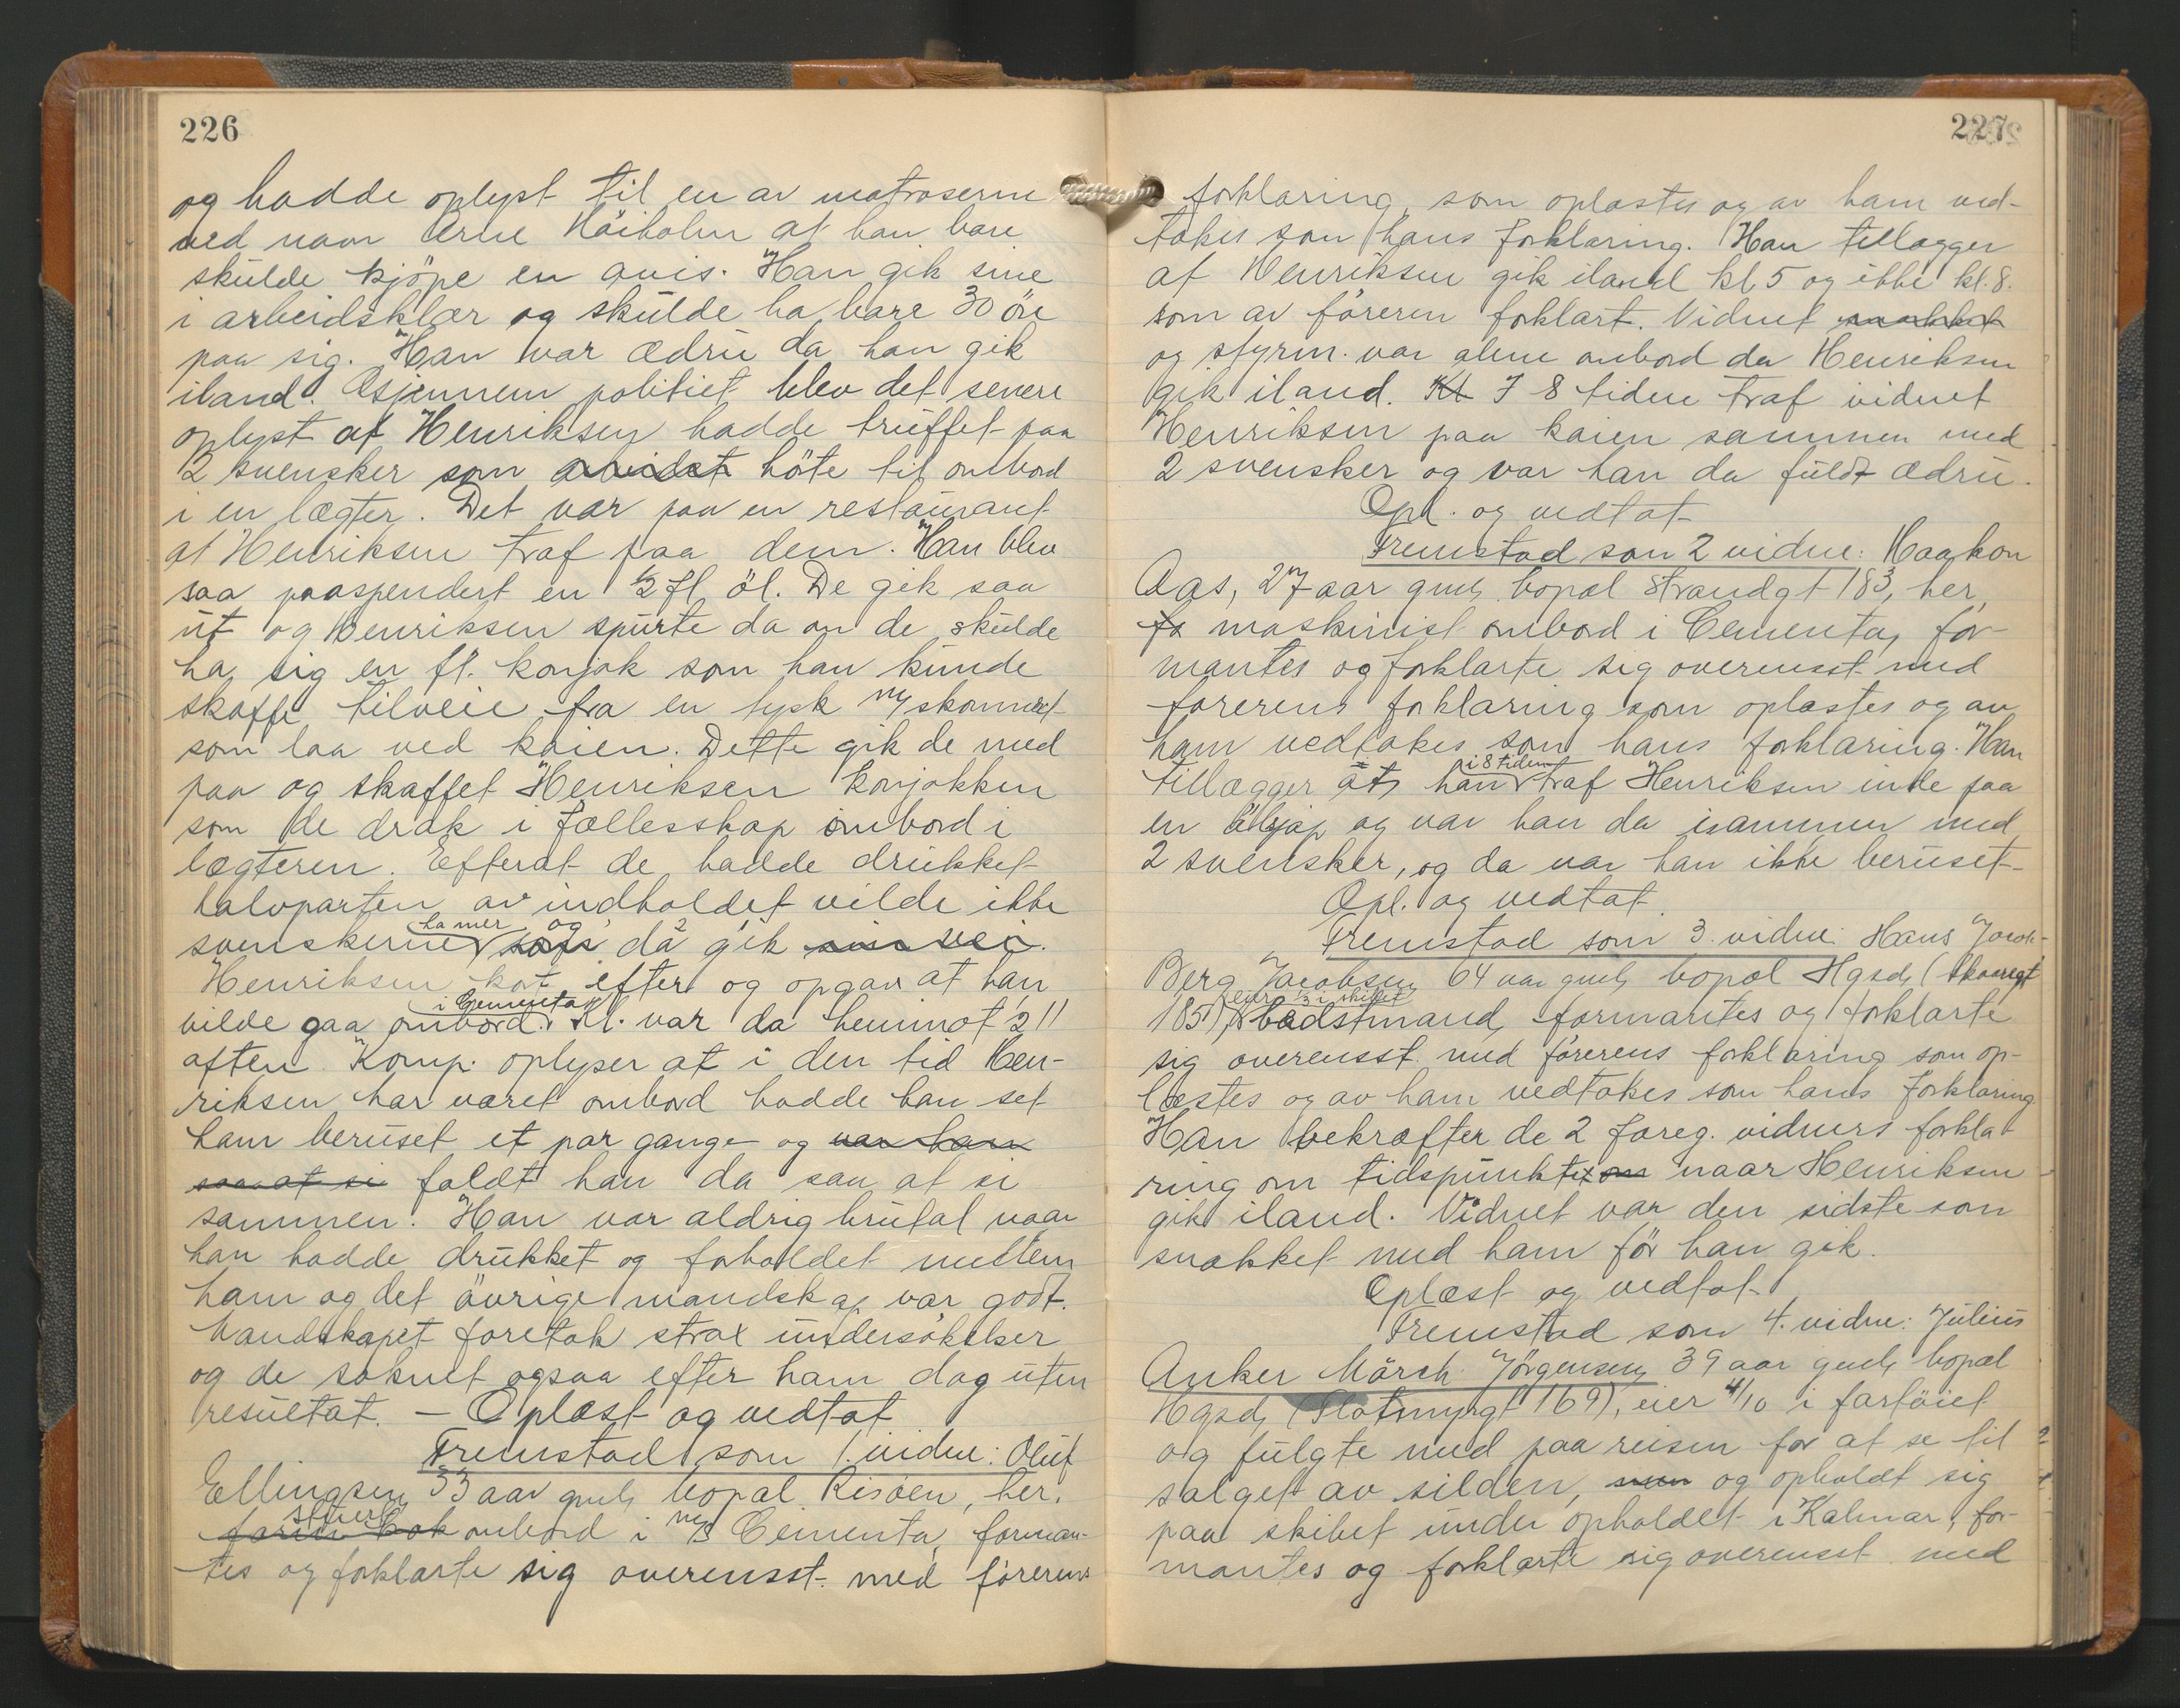 226
og hadde oplyst til en av matroserne
ved navn Arne Höiholm at han bare
skulde kjöpe en avis. Han gik sine
i arbeidsklær og skulde ha bare 30 öre
paa sig. Han var ædru da han gik
iland. Gjennem politiet blev det senere
oplyst at Henriksen hadde truffet paa
2 svensker som arbeidet höte til ombord
i en lægter. Det var paa en restaurant
at Henriksen traf paa dem. Han blev
saa paaspendert en 1/2 fl. öl. De gik saa
ut og Henriksen spurte da om de skulde
ha sig en fl. konjak som han kunde
skaffe tilveie fra en tysk m/skonnert
som laa ved kaien. Dette gik de med
paa og skaffet Henriksen konjakken
som de drak i fællesskap ombord i
lægteren. Efterat de hadde drukket
halvparten av indholdet vilde ikke
svenskerne ha mer og da gik sin vei.
Henriksen kot efter og opgav at han
vilde gaa ombord i Cementa. Kl. var da henimot 1/2 11
aften. Komp. oplyser at i den tid Hen-
riksen har været ombord hadde han set
ham beruset et par gange og var han
saa at si faldt han da saa at si
sammen. Han var aldrig brutal naar
han hadde drukket og forholdet mellem
ham og det övrige mandskap var godt.
Mandskapet foretok strax undersökelser
og de soknet ogsaa efter ham dog uten
resultat. — Oplæst og vedtat
Fremstod som 1. vidne: Oluf
Ellingsen 33 aar gml, bopæl Risöen, her.
stuert kok ombord i m/s Cementa, forman-
tes og forklarte sig overensst. med förerens
227
forklaring, som oplæstes og av ham ved-
tokes som hans forklaring. Han tillægger
at Henriksen gik iland kl. 5 og ikke kl. 8.
som av föreren forklart. Vidnet snakket
og styrm. var alene ombord da Henriksen
gik iland. Kl I 8 tiden traf vidnet
Henriksen paa kaien sammen med
2 svensker og var han da fuldt ædru.
Opl. og vedtat
Fremstod som 2 vidne: Haakon
Aas, 27 aar gml, bopæl Strandgt 183, her,
fo maskinist ombord i Cementa, for-
mantes og forklarte sig overensst. med
förerens forklaring som oplæstes og av
ham vedtokes som hans forklaring. Han
tillægger at han i 8 tiden traf Henriksen inde paa
en ölsjap og var han da isammen med
2 svensker, og da var han ikke beruset.
Opl. og vedtat.
Fremstod som 3. vidne: Hans Jacob
Berg Jacobsen, 64 aar gml, bopæl Hgsd, (Skaaregt
185) eier 1/3 i skibet bedstmand, formantes og forklarte
sig overensst. med förerens forklaring som op-
læstes og av ham vedtokes som hans forklaring
Han bekræfter de 2 foreg. vidners forkla-
ring om tidspunktet om naar Henriksen
gik iland. Vidnet var den sidste som
snakket med ham för han gik.
Oplæst og vedtat
Fremstod som 4. vidne: Julius
Anker Mörch Jörgensen, 39 aar gml, bopæl
Hgsd, (Flotmyrgt 169), eier 4/10 i fartöiet
og fulgte med paa reisen for at se til
salget av silden, men og opholdt sig
paa skibet under opholdet i Kalmar, for-
mantes og forklarte sig overensst med